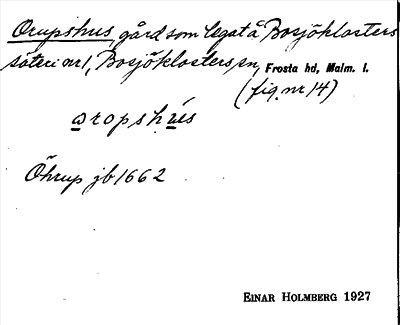 Orupshus, gård som legat å Bosjöklosters
säteri nr 1, Bosjöklosters sn, Frosta hd, Malm. l.
(fig. nr 14)
oropshús
Öhrup jb 1662
EINAR HOLMBERG 1927